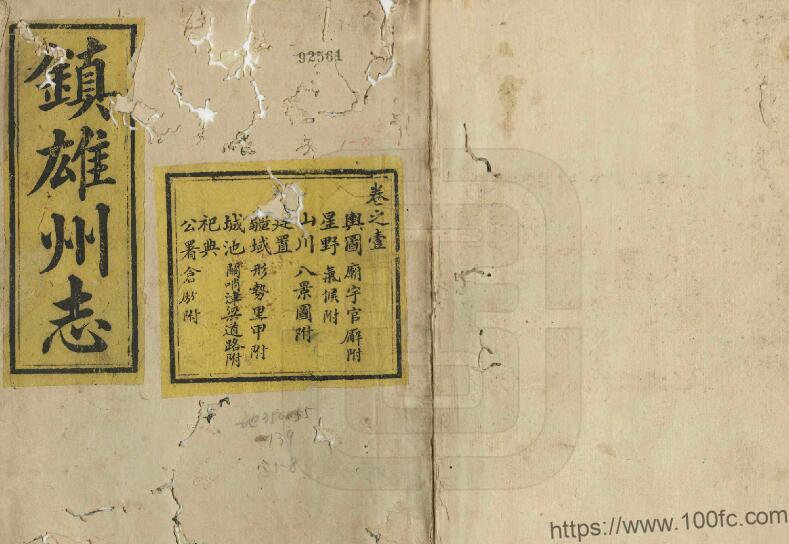 鎮雄州志
92561
1-8
卷之壹
輿圖 廟宇官廨附
星野 氣候附
山川 八景圖附
建置
疆域 形勢里甲附
城池 關哨津梁道路附
祀典
公署 倉廒附
139
https://www.100fc.com